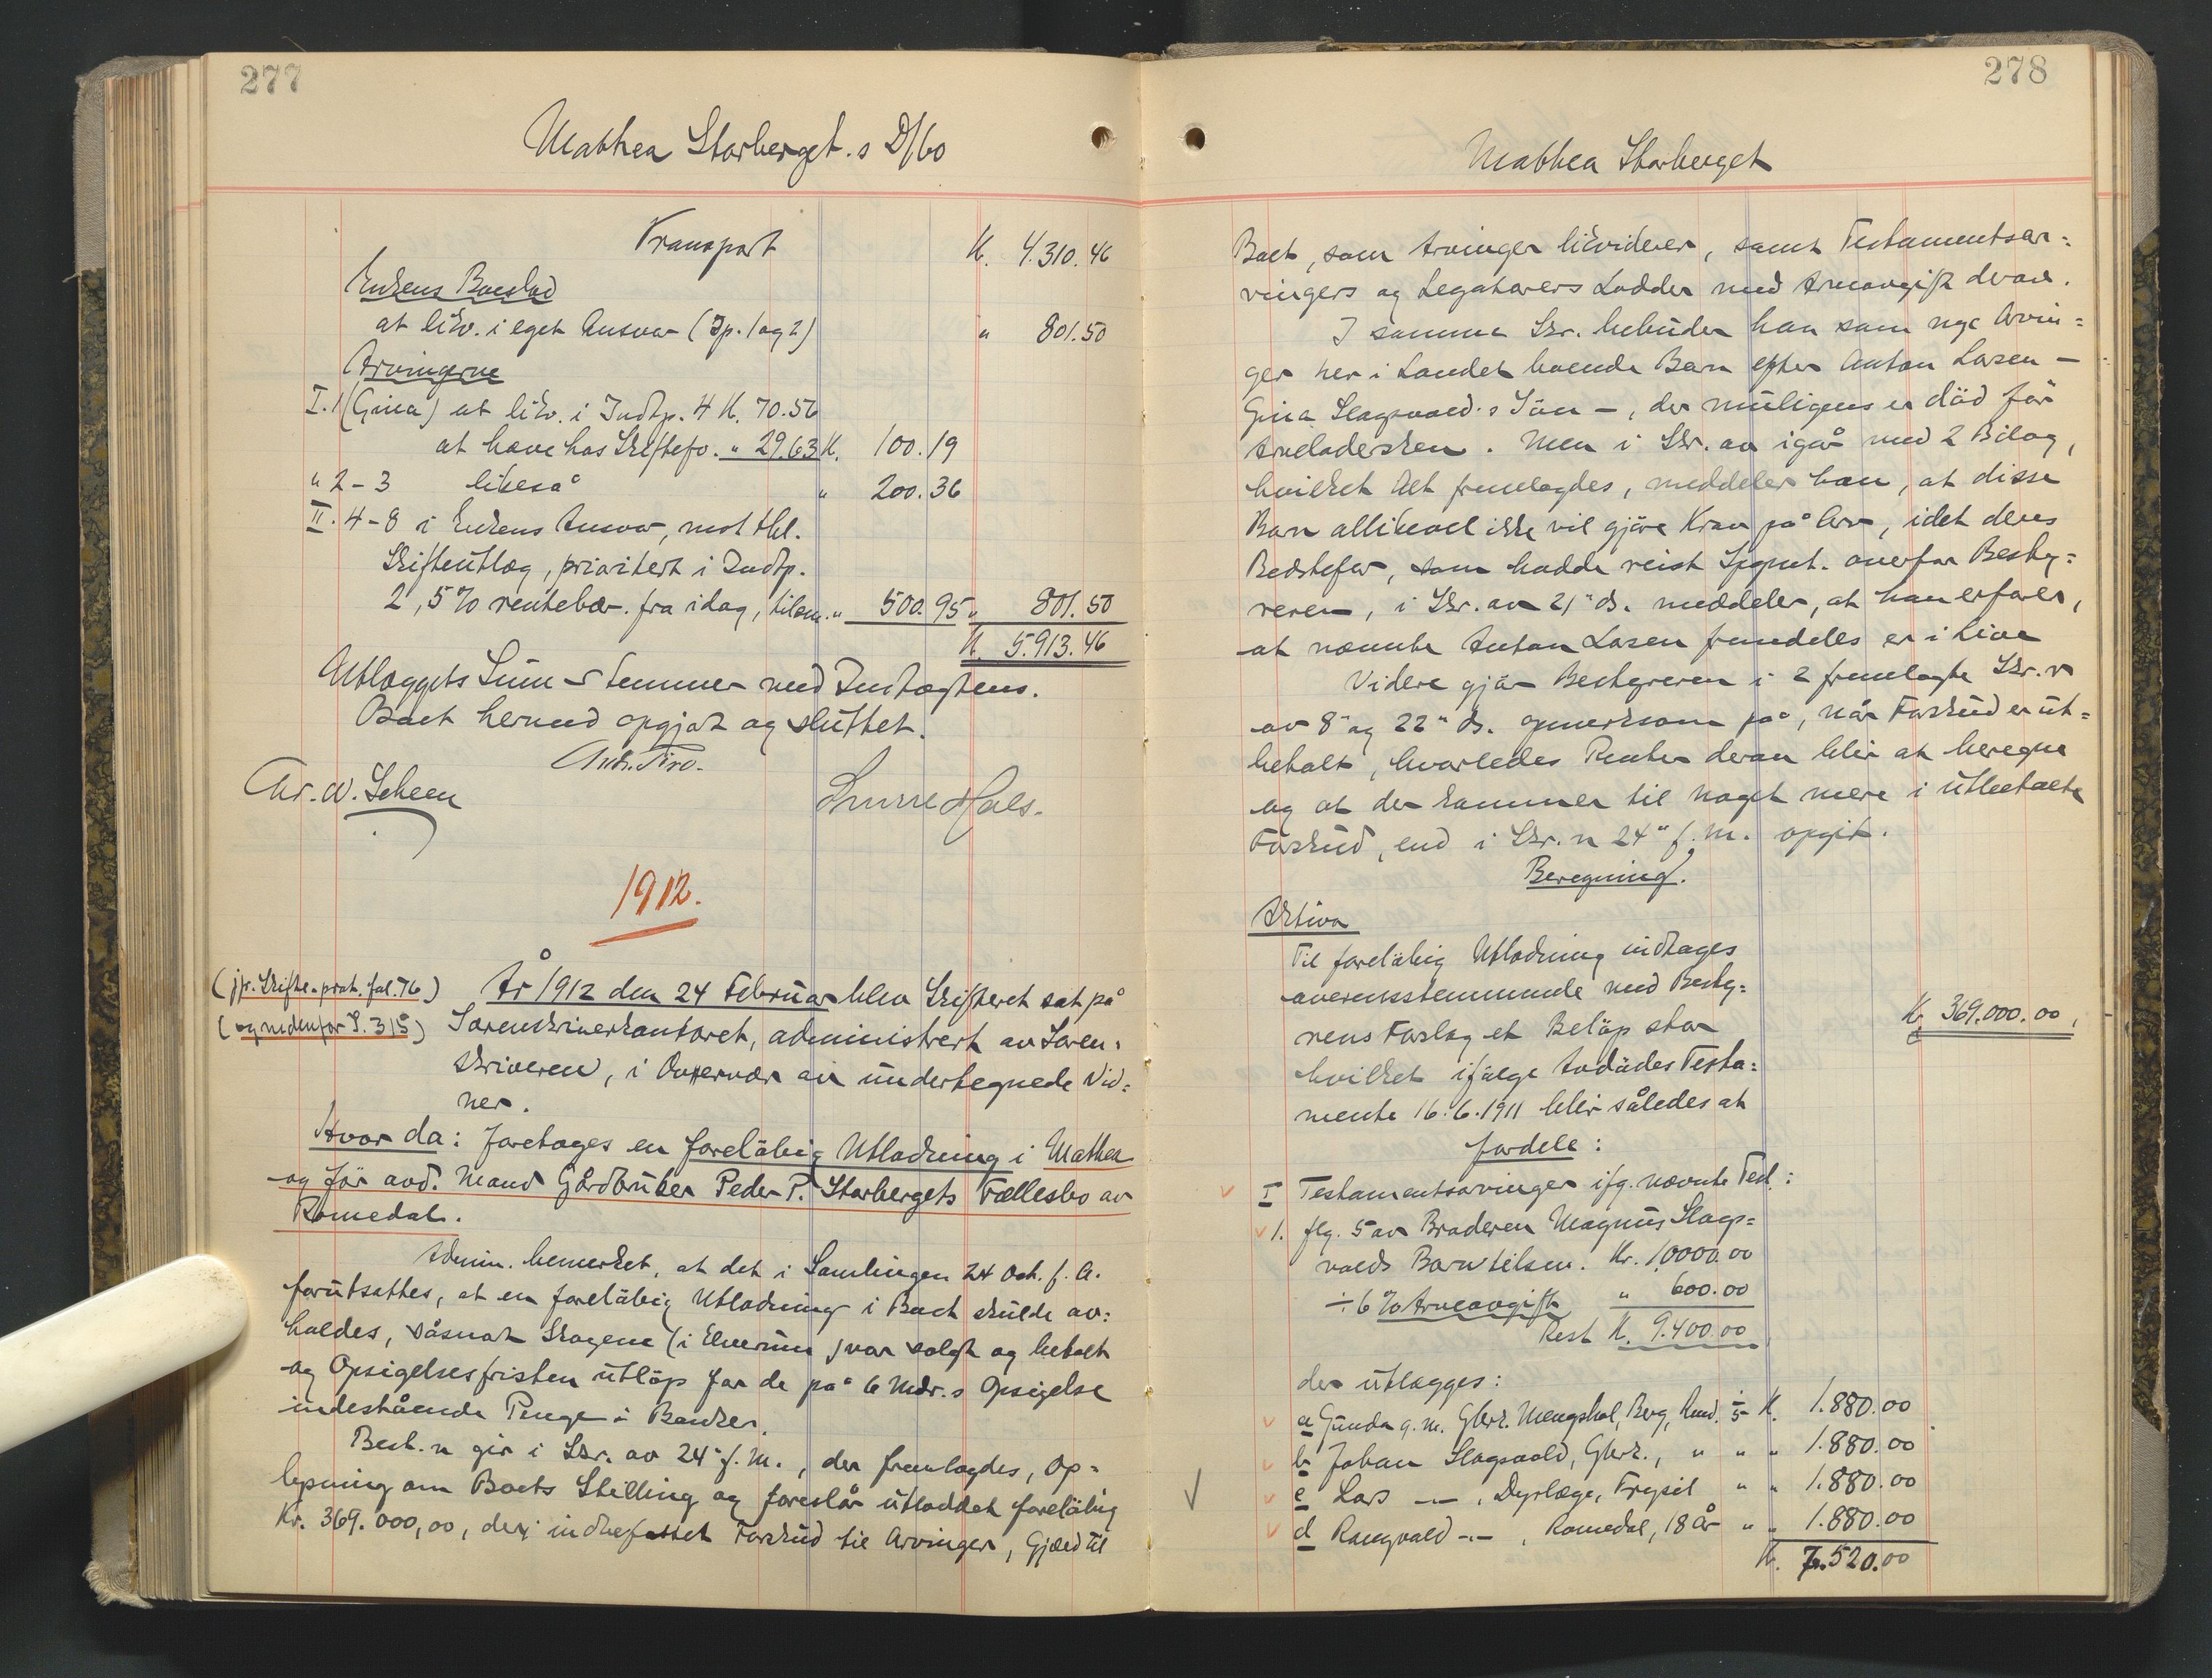 277
Mathea Storberget.s D/bo
Transport K. 4.310.46
Enkens Boeslod
at likv. i eget Ansvar (Ip. 1 og 2) " 801.50
Arvingerne
I. 1 (Gina) at likv. i Indtp. 4 K. 70.56
at have hos Skiftefo. " 29.63 K. 100.19
" 2-3 likeså " 200.36
II. 4-8 i Enkens Ansvar, mot thl.
Skifteutlæg, prioritert i Indtp.
2, 5% rentebær. fra idag, tilsm. " 500.95 " 801.50
K. 5.913.46
Utlæggets Sum stemmer med Indtægtens.
Boet hermed opgjort og sluttet.
Chr. W. Scheen
1912.
(jfr. Skifte-prot. fol. 76)
(og nedenfor S. 315)
År 1912 den 24 Februar blev Skifteret sat på
Sorenskriverkontoret, administrert av Soren-
skriveren, i Overvær av undertegnede Vid=
ner.
Hvor da: foretoges en foreløbig Utlodning i Mathea
og før avd. Mand Gårdbruker Peder P. Storbergets Fællesbo av
Romedal.
Admin. bemerket, at det i Samlingen 24 Okt. f. A.
forutsattes, at en foreløbig Utlodning i Boet skulde av=
holdes, såsnart Skogene (i Elverum) var solgt og betalt
og Opsigelsesfristen utløp for de på 6 Mdr.s Opsigelse
indestående Penge i Banker.
Best.n gir i Skr. av 24" f. M., der fremlagdes, Op=
lysning om Boets Stilling og foreslår utloddet foreløbig
Kr. 369.000,00, deri indbefattet Forskud til Arvinger, Gjæld til
278
Mathea Storberget
Boet, som Arvinger likviderer, samt Testamentsar=
vingers og Legatarers Lodder med Arveavgift derav.
I samme Skr. bebuder han som nye Arvin=
ger her i Landet boende Barn efter Anton Larsen –
Gina Slagsvold's Søn –, der muligens er død før
Arveladersken. Men i Skr. av igår med 2 Bilag,
hvilket Alt fremlagdes, meddeler han, at disse
Barn allikevel ikke vil gjøre Krav på Arv, idet deres
Bedstefar, som hadde reist Spgmt. overfor Besty=
reren, i Skr. av 21" ds. meddeler, at han erfarer,
at nævnte Anton Larsen fremdeles er i Live
Videre gjør Bestyreren i 2 fremlagte Skr.r
av 8" og 22" ds. opmerksom på, når Forskud er ut=
betalt, hvorledes Renter derav blir at beregne
og at der kommer til noget mere i utbetalte
Forskud, end i Skr. n 24" f. M. opgit.
Beregning.
Aktiva
Til foreløbig Utlodning indtages
overensstemmende med Besty=
rens Forslag et Beløp stor K. 369.000.00,
hvilket ifølge Avdødes Testa=
mente 16.6.1911 blir således at
fordele:
I Testamentsarvinger ifg. nævnte Test.:
1. flg. 5 av Broderen Magnus Slags=
volds Barn tilsm. Kr. 10000.00
÷ 6% Arveavgift " 600.00
Rest K. 9.400.00
der utlægges:
a Gunda g. m. Gbrk. Mengshol, Berg, Rmd. 1/5 K. 1.880.00
b Johan Slagsvold, Gbrk., " " " 1.880.00
c Lars –"–, Dyrlæge, Trysil " " 1.880.00
d Rangvald –"–, Romedal, 18 år " " 1.880.00
K. 7.520.00